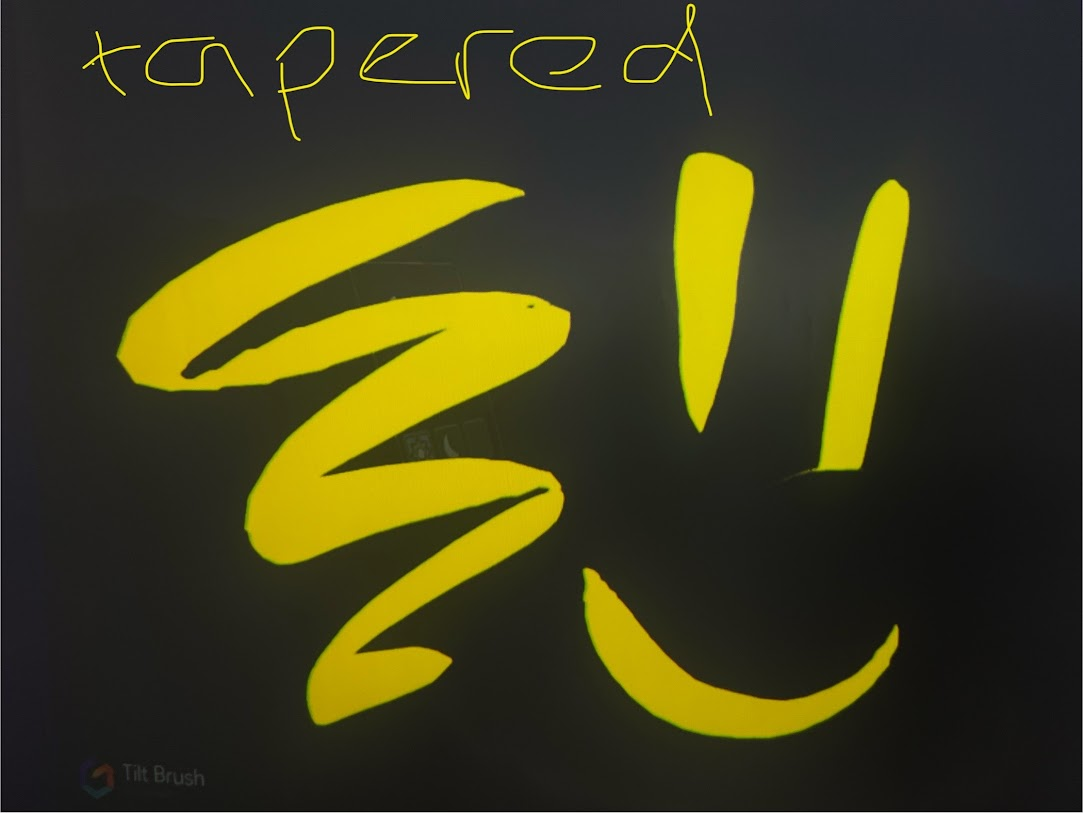 tapered
Tilt Brush